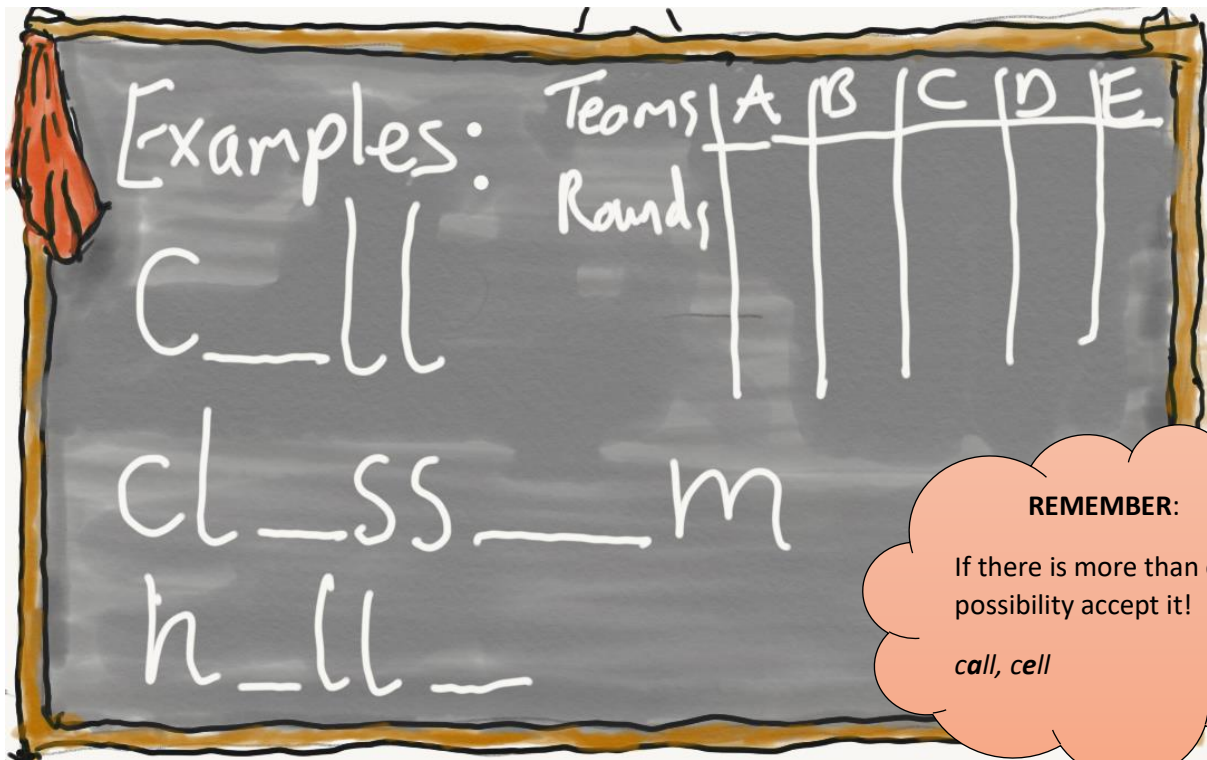 Examples:
Teams A B C D E
Rounds
C_ll
cl_ss__m
h_ll_
REMEMBER:
If there is more than
possibility accept it!
call, cell